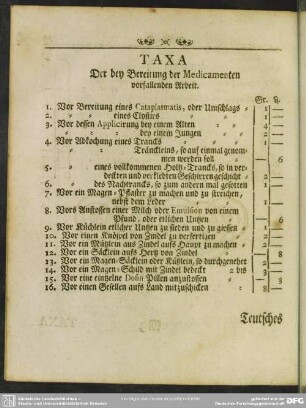 TAXA
Der bey Bereitung der Medicamenten
vorfallenden Arbeit.
Gr. ₰.
1. Vor Bereitung eines Cataplasmatis, oder Umschlags - 1 —
2. » » eines Clystirs 1 —
3. Vor dessen Applicirung bey einem Alten 4 —
bey einem Jungen 2 —
4. Vor Abkochung eines Trancks 1 —
Tränckleins, so auf einmal genom-
men werden soll — 6
5. eines vollkommenen Holtz-Trancks, so in ver-
deckten und verklebten Geschirren geschicht 2 —
6. des Nachtrancks, so zum andern mal gesotten — 6
7. Vor ein Magen-Pflaster zu machen und zu streichen,
nebst dem Leder 1 —
8. Vors Anstossen einer Milch oder Emulsion von einem
Pfund, oder etlichen Untzen — 6
9. Vor Küchlein etlicher Untzen zu sieden und zu giessen 1 —
10. Vor einen Knöpel von Zindel zu verfertigen
11. Vor ein Mützlein aus Zindel aufs Haupt zu machen 2 —
12. Vor ein Säcklein aufs Hertz von Zindel 8
13. Vor ein Magen-Säcklein oder Küßlein, so durchgenehet
14. Vor ein Magen-Schild mit Zindel bedeckt 2 bis 3
15. Vor eine eintzelne Dosin Pillen anzustossen — 8
16. Vor einen Gesellen aufs Land mitzuschicken 8 —
Teutsches